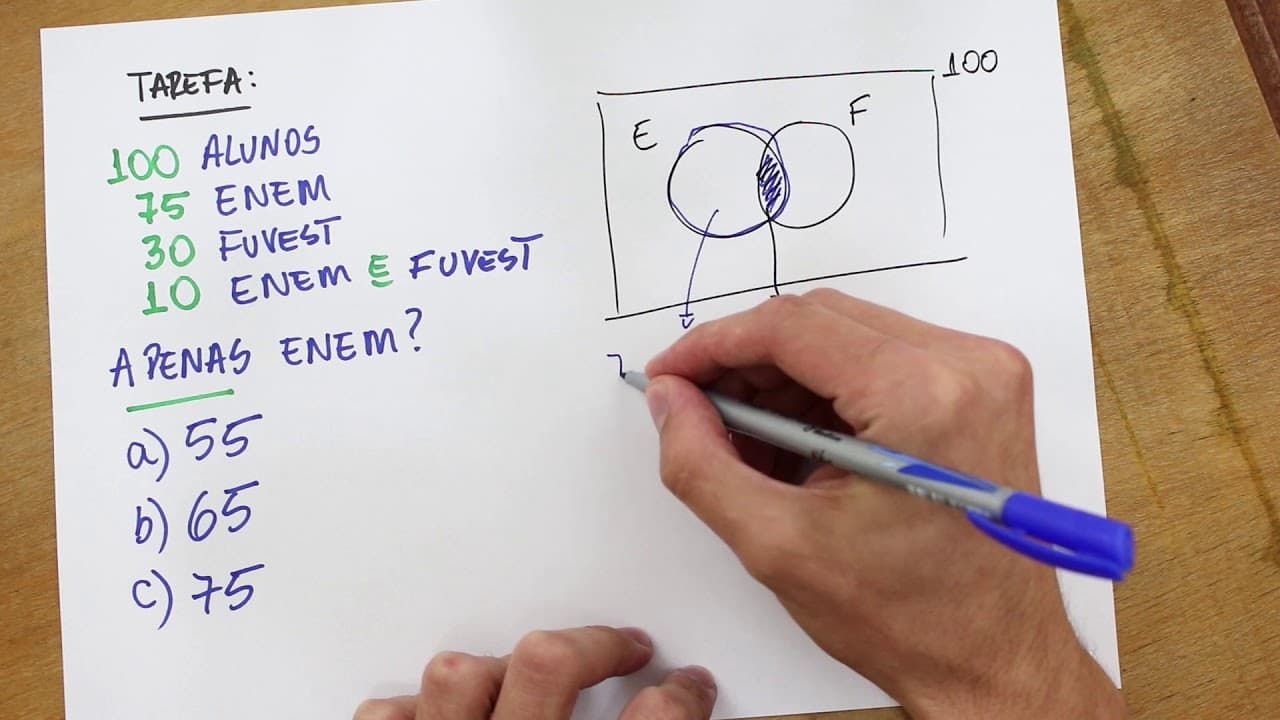 TAREFA:
100 ALUNOS
75 ENEM
30 FUVEST
10 ENEM E FUVEST
APENAS ENEM?
a) 55
b) 65
c) 75
100
E
F